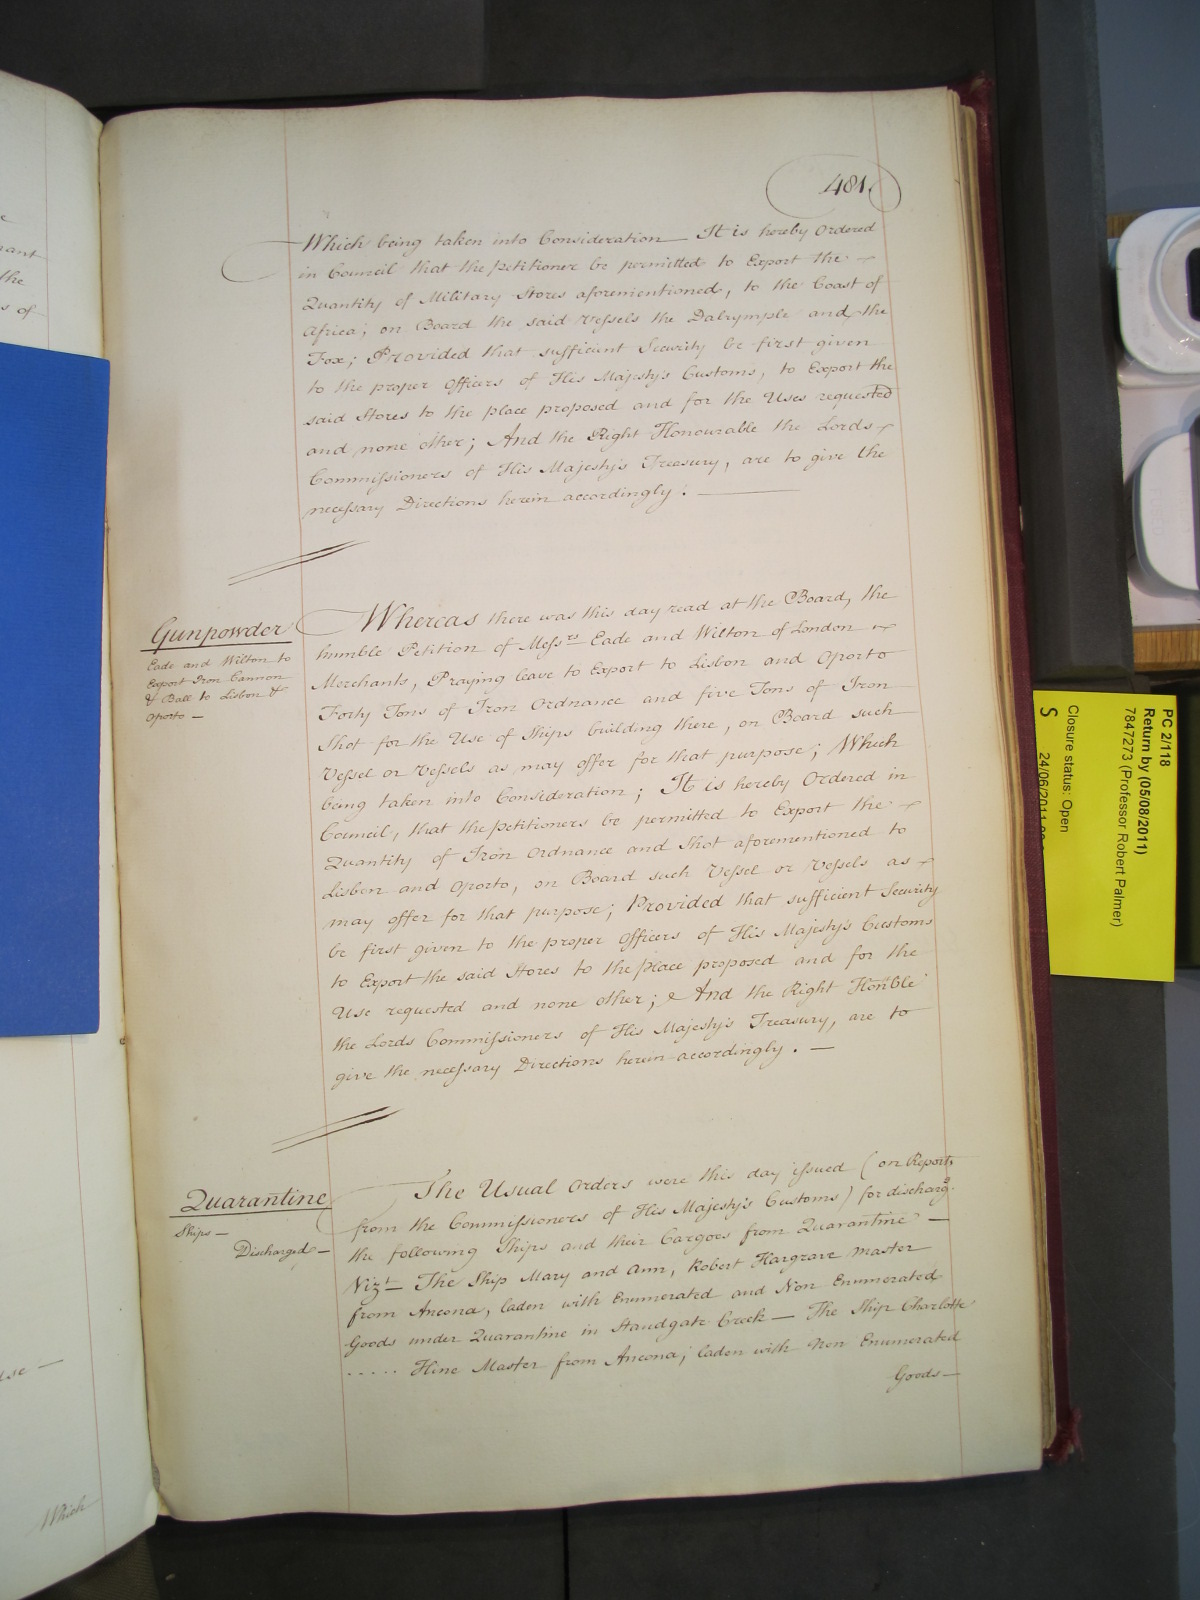 481.
Which being taken into Consideration It is hereby Ordered
in Council that the petitioner be permitted to Export the
Quantity of Military Stores aforementioned, to the Coast of
Africa; on Board the said Vessels the Dalrymple and the
Fox; Provided that sufficient Security be first given
to the proper Officers of His Majesty's Customs, to Export the
said Stores to the place proposed and for the Uses requested
and none other; And the Right Honourable the Lords
Commissioners of His Majesty's Treasury, are to give the
necessary Directions herein accordingly.
Gunpowder
Eade and Wilton to
Export Iron Cannon
& Ball to Lisbon &
Oporto —
Whereas there was this day read at the Board, the
humble Petition of Messrs Eade and Wilton of London
Merchants, Praying leave to Export to Lisbon and Oporto
Forty Tons of Iron Ordnance and five Tons of Iron
Shot for the Use of Ships building there, on Board such
Vessel or Vessels as may offer for that purpose; Which
being taken into Consideration; It is hereby Ordered in
Council, that the petitioners be permitted to Export the
Quantity of Iron Ordnance and Shot aforementioned to
Lisbon and Oporto, on Board such Vessel or Vessels as
may offer for that purpose; Provided that sufficient Security
be first given to the proper Officers of His Majesty's Customs
to Export the said Stores to the place proposed and for the
Use requested and none other; & And the Right Honble
the Lords Commissioners of His Majesty's Treasury, are to
give the necessary Directions herein accordingly. —
Quarantine
Ships —
Discharged —
The Usual Orders were this day issued (on Report
from the Commissioners of His Majesty's Customs) for discharg.g
the following Ships and their Cargoes from Quarantine —
Vizt The Ship Mary and Ann, Robert Hargrave Master
from Ancona, laden with Enumerated and Non Enumerated
Goods under Quarantine in Standgate Creek — The Ship Charlotte
..... Hine Master from Ancona; laden with Non Enumerated
Goods —
ant
the
s of
use —
Which
PC 2/118
Return by (05/08/2011)
7847273 (Professor Robert Palmer)
Closure status: Open
S
24/06/2011